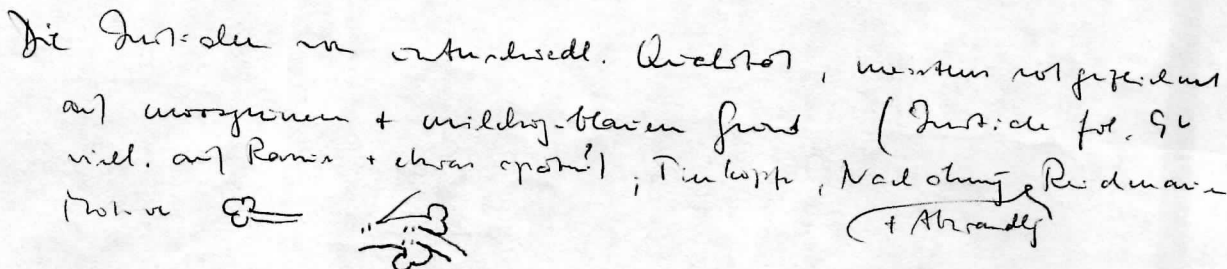 Die Initialen von unterschiedl. Qualität, meistens rot gezeichnet
auf moosgrünem + milchig-blauem Grund (Initiale fol.
viell. auf Rasur + etwas später!), Tierköpfe, Nachahmung
Motive
+ Abwandlg